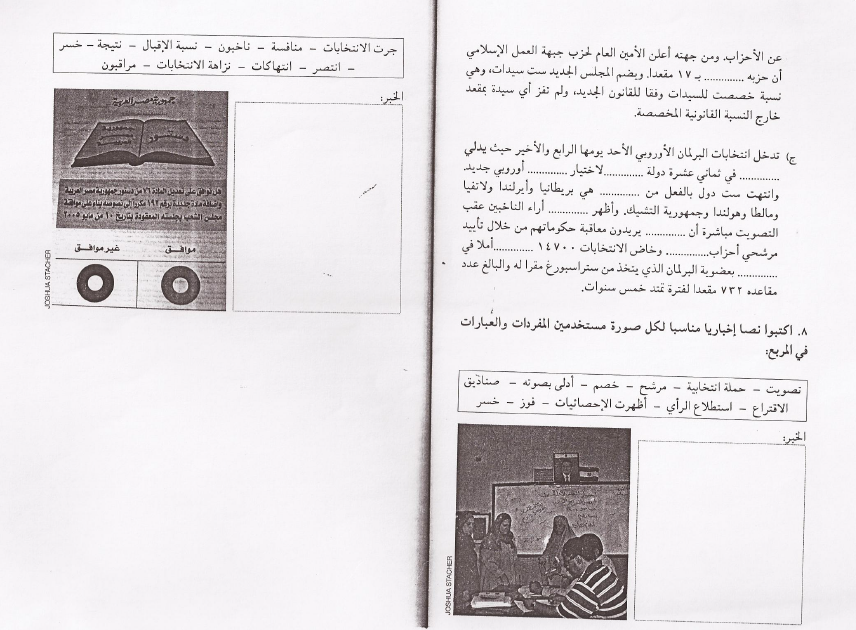 عن الأحزاب. ومن جهته أعلن الأمين العام لحزب جبهة العمل الإسلامي
أن حزبه .............. بـ ١٧ مقعدا. ويضم المجلس الجديد ست سيدات، وهي
نسبة خصصت للسيدات وفقا للقانون الجديد، ولم تفز أي سيدة بمقعد
خارج النسبة القانونية المخصصة.
ج) تدخل انتخابات البرلمان الأوروبي الأحد يومها الرابع والأخير حيث يدلي
.............. في ثماني عشرة دولة ..............لاختيار .............. أوروبي جديد.
وانتهت ست دول بالفعل من .............. هي بريطانيا وأيرلندا ولاتفيا
ومالطا وهولندا وجمهورية التشيك. وأظهر .............. أراء الناخبين عقب
التصويت مباشرة أن .............. يريدون معاقبة حكوماتهم من خلال تأييد
مرشحي أحزاب.............. وخاض الانتخابات ١٤٧٠٠ ..............أملا في
.............. بعضوية البرلمان الذي يتخذ من ستراسبورغ مقرا له والبالغ عدد
مقاعده ٧٣٢ مقعدا لفترة تمتد خمس سنوات.
٨. اكتبوا نصا إخباريا مناسبا لكل صورة مستخدمين المفردات والعبارات
في المربع:
تصويت – حملة انتخابية – مرشح – خصم – أدلى بصوته – صناديق
الاقتراع – استطلاع الرأي – أظهرت الإحصائيات – فوز – خسر
الخبر:
JOSHUA STACHER
جرت الانتخابات – منافسة – ناخبون – نسبة الإقبال – نتيجة – خسر
– انتصر – انتهاكات – نزاهة الانتخابات – مراقبون
الخبر:
جمهورية مصر العربية
هل توافق على تعديل المادة ٧٦ من دستور جمهورية مصر العربية
وإضافة مادة جديدة برقم ١٩٢ مكررا إلى نصوصه بناء على موافقة
مجلس الشعب بجلسته المعقودة بتاريخ ١٠ من مايو ٢٠٠٥
موافق
غير موافق
JOSHUA STACHER